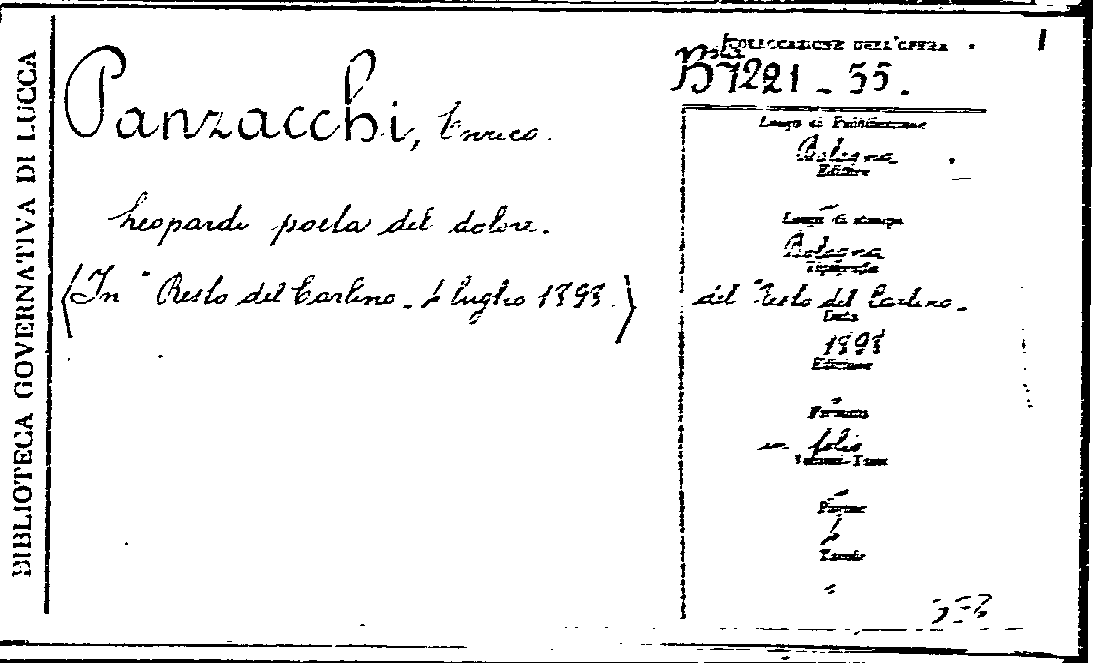 BIBLIOTECA GOVERNATIVA DI LUCCA
Panzacchi, Enrico.
Leopardi poeta del dolore.
(In "Resto del Carlino - luglio 1898.)
COLLOCAZIONE DELL'OPERA
1
Bsta
B 1221 - 55.
Luogo di Pubblicazione
Bologna
Editore
Luogo di stampa
Bologna
Tipografia
del "Resto del Carlino.
Data
1898
Edizione
Formato
in folio
Volumi-Tomi
Pagine
Tavole